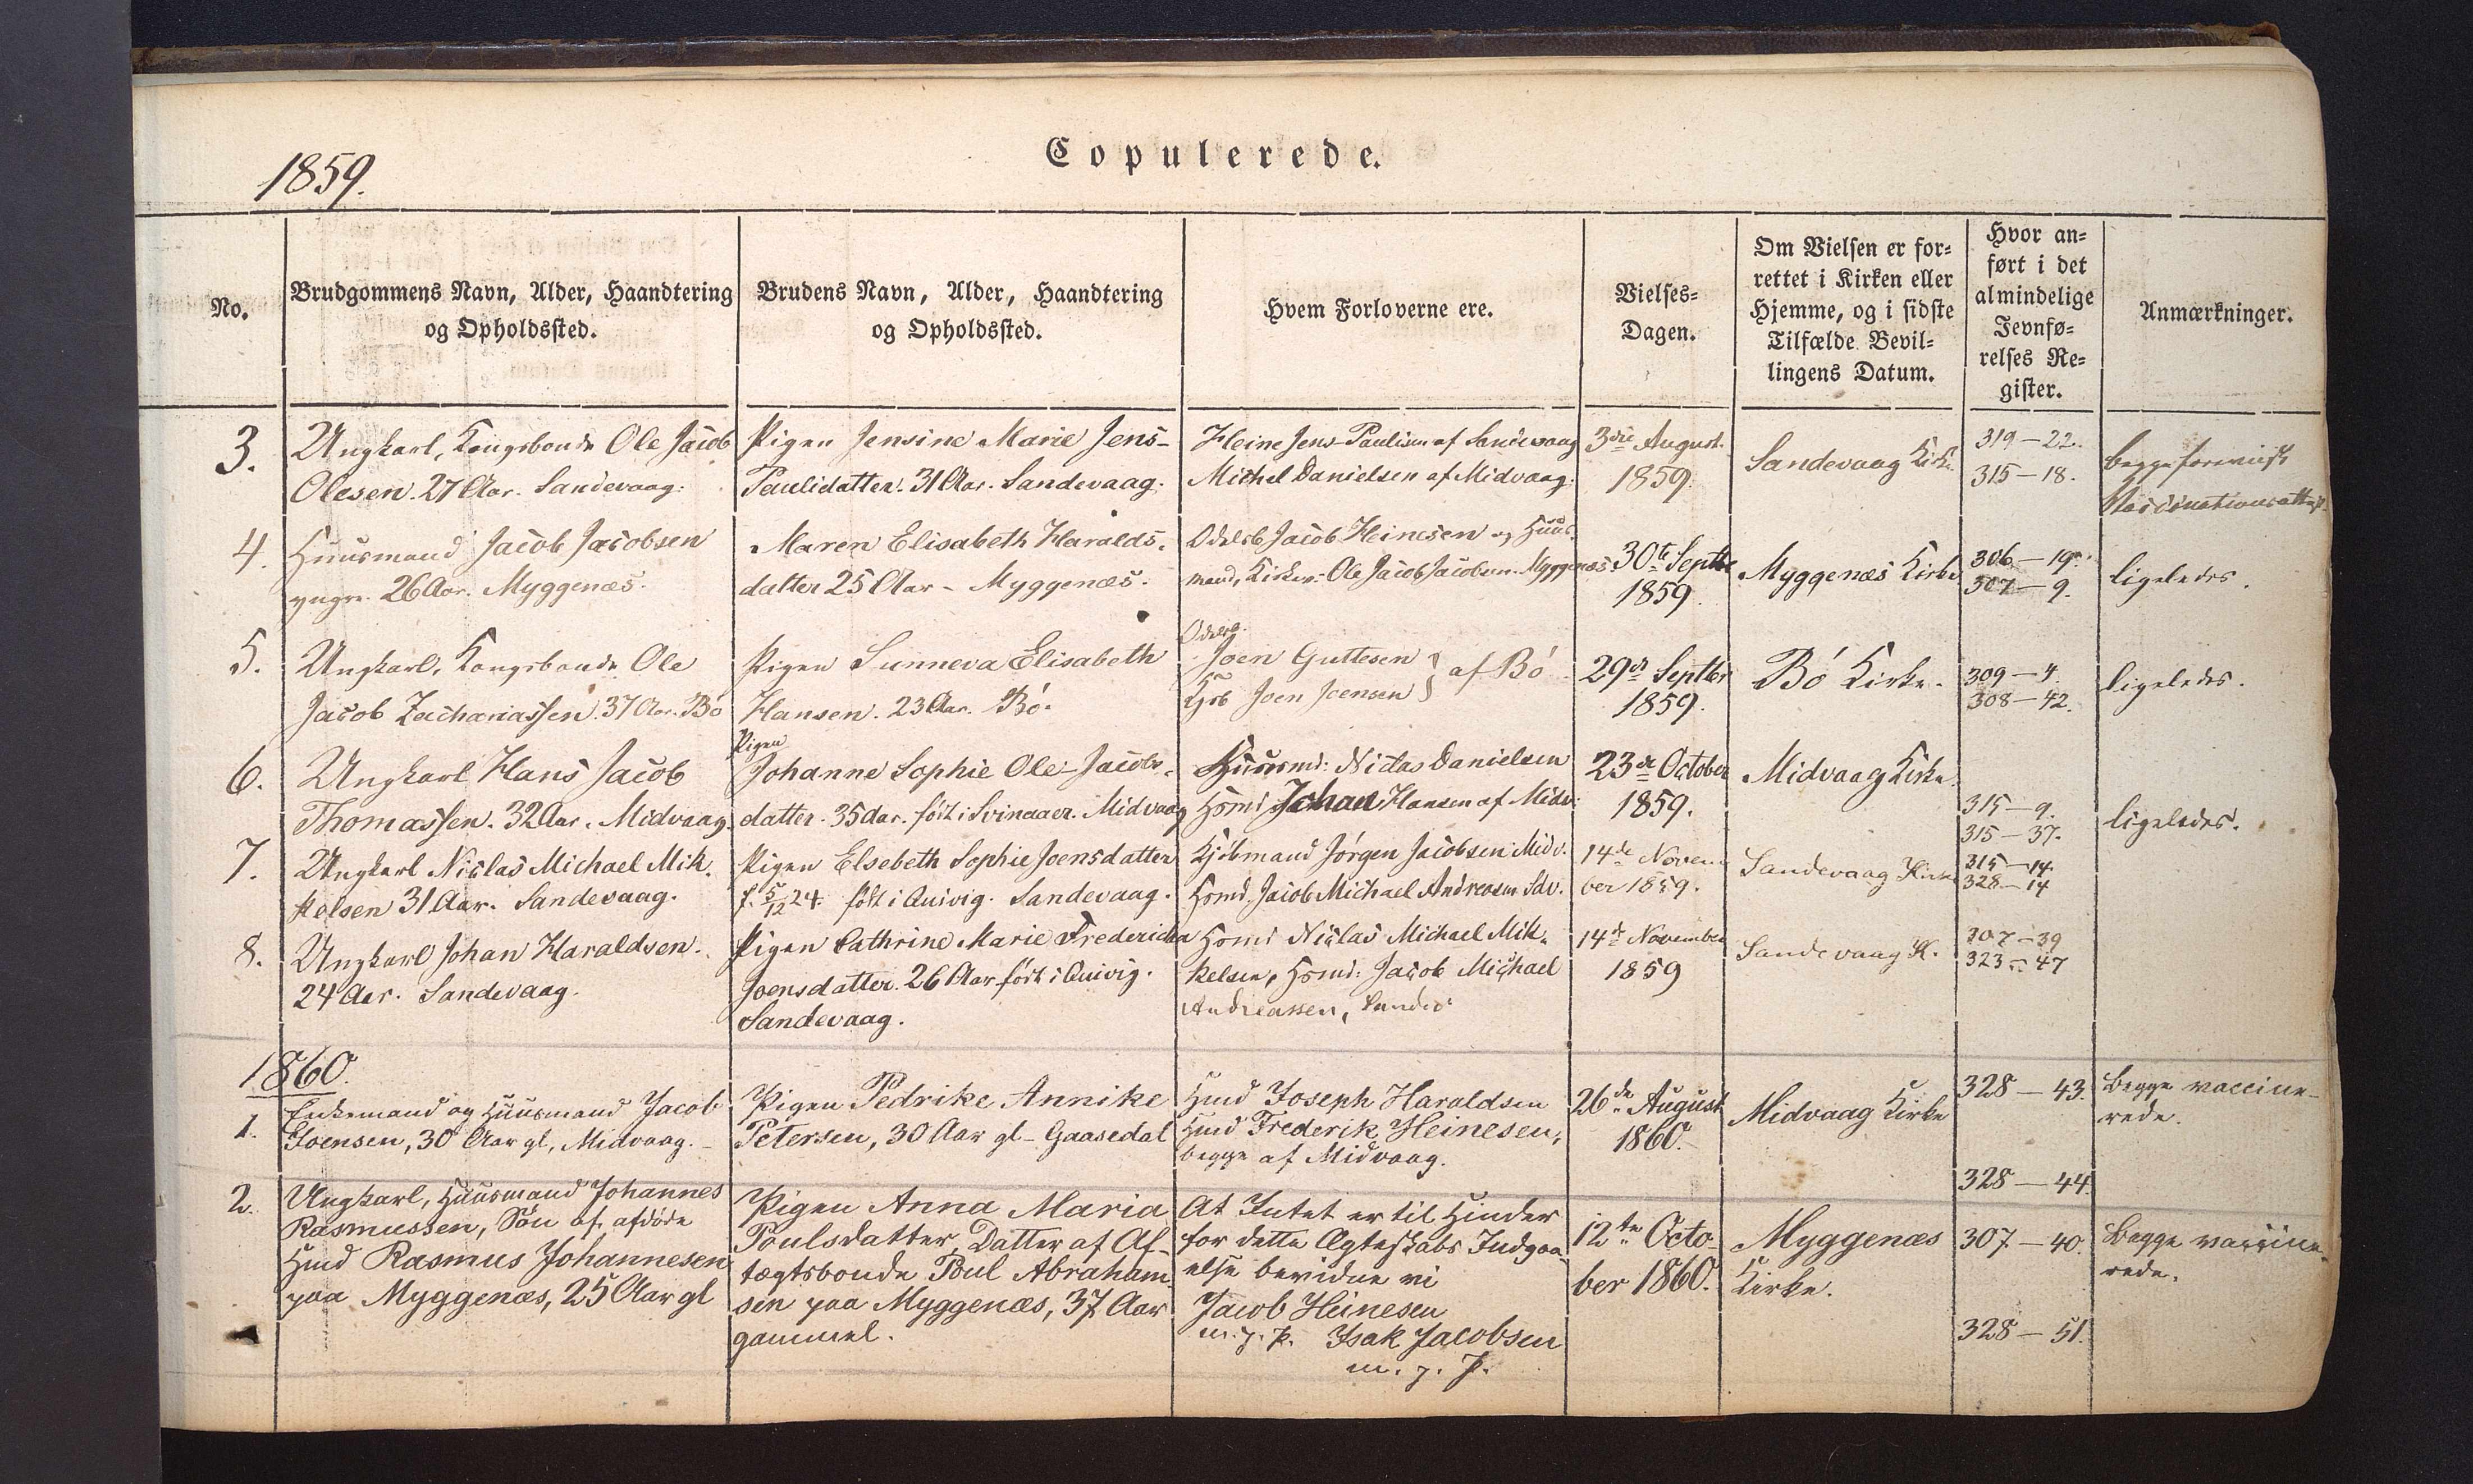 Copulerede.
1859.
No.
Brudgommens Navn, Alder, Haandtering
og Opholdssted.
Brudens Navn, Alder, Haandtering
og Opholdssted.
Hvem Forloverne ere.
Vielses-
Dagen.
Om Vielsen er for-
rettet i Kirken eller
Hjemme, og i sidste
Tilfælde Bevil-
lingens Datum.
Hvor an-
ført i det
almindelige
Jevnfø-
relses Re-
gister.
Anmærkninger.
3.
Ungkarl, Kongsbonde Ole Jacob
Olesen. 27 Aar. Sandevaag.
Pigen Jensine Marie Jens-
Paulidatter. 31 Aar. Sandevaag.
Heine Jens Paulisen af Sandevaag
Michel Danielsen af Midvaag.
3die August.
1859.
Sandevaag Kirke
319-22.
315-18.
begge forevist
Vaccinationsattest.
4.
Huusmand Jacob Jacobsen
yngre. 26 Aar. Myggenæs.
Maren Elisabeth Haralds-
datter 25 Aar - Myggenæs.
Odelsb Jacob Heinesen og Huus-
mand, Ole Jacob Jacobsen. Myggenæs.
30te Septbr
1859.
Myggenæs Kirke
306-19.
307-9.
ligeledes.
5.
Ungkarl, Kongsbonde Ole
Jacob Zachariassen. 37 Aar. Bö
Pigen Sunneva Elisabeth
Hansen. 23 Aar. Bö.
Odelsb.
Joen Guttesen
Joen Joensen } af Bö
29de Septbr
1859.
Bö Kirke.
309-4.
308-42.
ligeledes.
6.
Ungkarl Hans Jacob
Thomassen. 32 Aar. Midvaag.
Pigen
Johanne Sophie Ole-Jacobs-
datter. 35 Aar. födt i Svinaaer. Midvaag
Huusmd: Niclas Danielsen
Hsmd Johan Hansen af Midv:
23de October
1859.
Midvaag Kirke.
315-9.
315-37.
ligeledes.
7.
Ungkarl Niclas Michael Mik-
kelsen 31 Aar. Sandevaag.
Pigen Elsebeth Sophie Joensdatter
f. 5/12 24. födt i Quivig. Sandevaag.
Kjöbmand Jörgen Jacobsen Midv.
Hsmd. Jacob Michael Andreasen Sdv.
14de Novem-
ber 1859.
Sandevaag Kirke
315-14.
328-14
8.
Ungkarl Johan Haraldsen.
24 Aar. Sandevaag.
Pigen Cathrine Marie Fredericka
Joensdatter. 26 Aar födt i Quivig.
Sandevaag.
Hsmd Niclas Michael Mik-
kelsen, Hsmd: Jacob Michael
Andreassen, Sandev
14de November
1859
Sandevaag K.
307-39
323-47
1860.
1.
Enkemand og Huusmand Jacob
Joensen, 30 Aar gl, Midvaag.
Pigen Pedrike Annike
Petersen, 30 Aar gl - Gaasedal
Hmd Joseph Haraldsen
Hmd Frederik Heinesen,
begge af Midvaag.
26de August
1860.
Midvaag Kirke
328-43.
328-44.
Begge vaccine-
rede.
2.
Ungkarl, Huusmand Johannes
Rasmussen, Sön af afdöde
Hmd Rasmus Johannesen
paa Myggenæs, 25 Aar gl
Pigen Anna Maria
Poulsdatter, Datter af Af-
tægtsbonde Poul Abraham-
sen paa Myggenæs, 37 Aar
gammel.
At Intet er til Hinder
for dette Ægteskabs Indgaa-
else bevidne vi
Jacob Heinesen
m. p. Isak Jacobsen
12te Octo-
ber 1860.
Myggenæs
Kirke.
307-40.
328-51.
Begge vaccine-
rede.